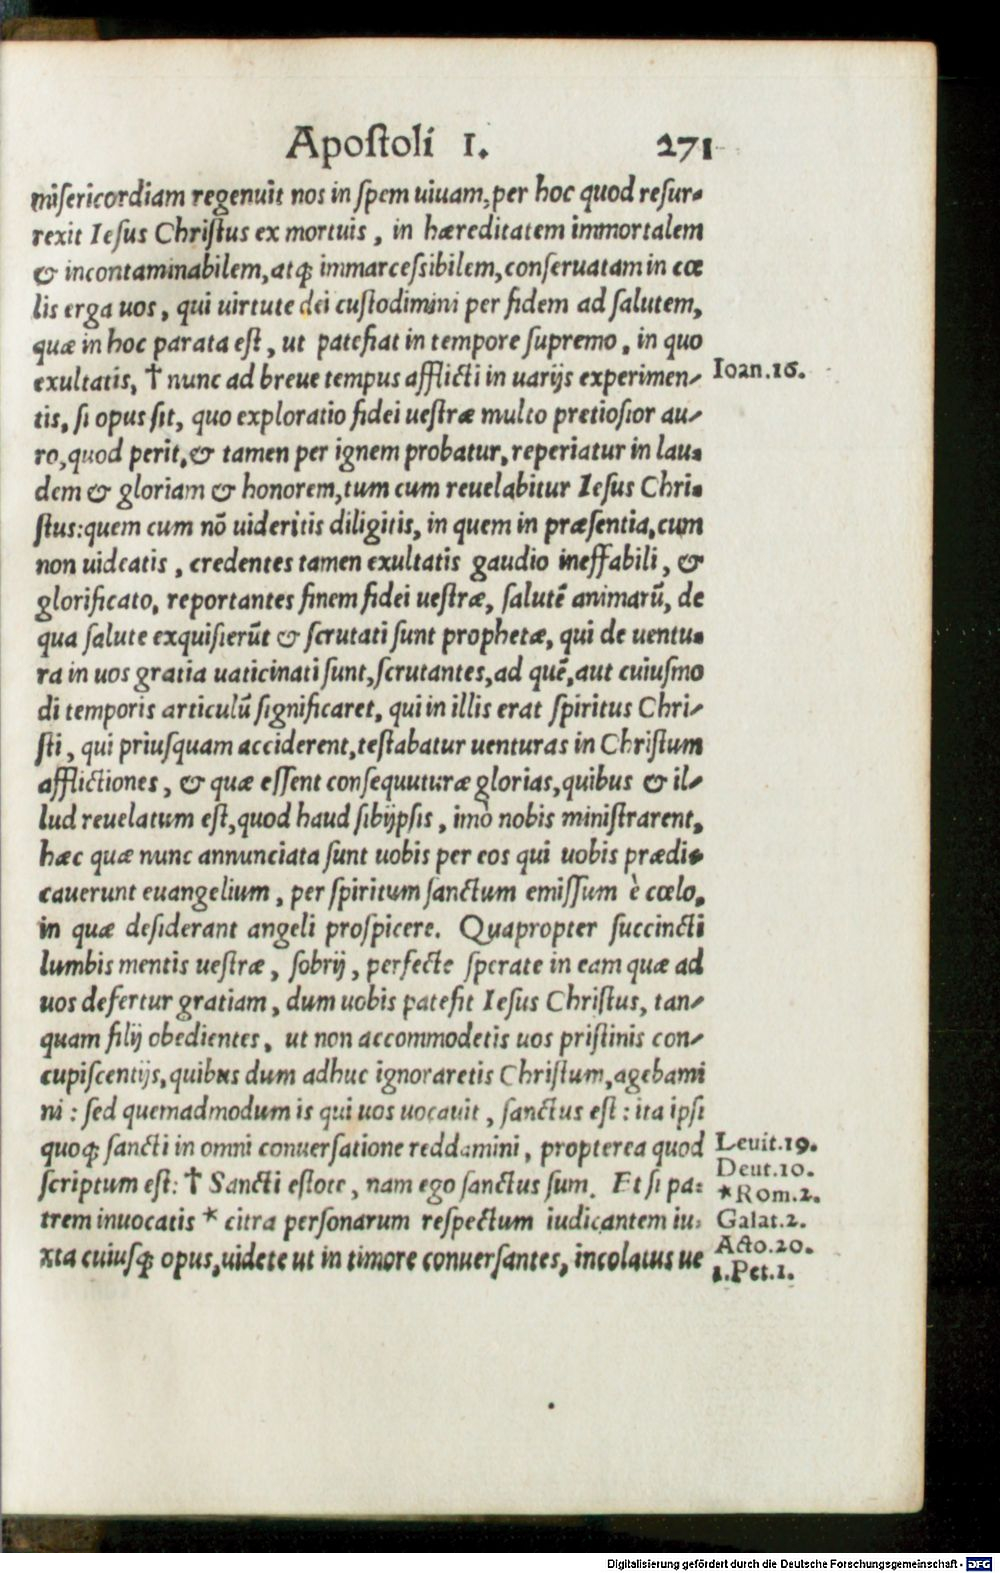 Apostoli 1. 271
misericordiam regenuit nos in spem uiuam, per hoc quod resur-
rexit Iesus Christus ex mortuis, in hæreditatem immortalem
& incontaminabilem, atq; immarcessibilem, conseruatam in cœ
lis erga uos, qui uirtute dei custodimini per fidem ad salutem,
quæ in hoc parata est, ut patefiat in tempore supremo, in quo
exultatis, † nunc ad breue tempus afflicti in uarijs experimen-
Ioan.16.
tis, si opus sit, quo exploratio fidei uestræ multo pretiosior au-
ro, quod perit, & tamen per ignem probatur, reperiatur in lau-
dem & gloriam & honorem, tum cum reuelabitur Iesus Chri-
stus: quem cum nō uideritis diligitis, in quem in præsentia, cum
non uideatis, credentes tamen exultatis gaudio ineffabili, &
glorificato, reportantes finem fidei uestræ, salutē animarū, de
qua salute exquisierūt & scrutati sunt prophetæ, qui de uentu-
ra in uos gratia uaticinati sunt, scrutantes, ad quē, aut cuiusmo
di temporis articulū significaret, qui in illis erat spiritus Chri-
sti, qui priusquam acciderent, testabatur uenturas in Christum
afflictiones, & quæ essent consequuturæ glorias, quibus & il-
lud reuelatum est, quod haud sibijpsis, imò nobis ministrarent,
hæc quæ nunc annunciata sunt uobis per eos qui uobis prædi-
cauerunt euangelium, per spiritum sanctum emissum è cœlo,
in quæ desiderant angeli prospicere. Quapropter succincti
lumbis mentis uestræ, sobrij, perfecte sperate in eam quæ ad
uos defertur gratiam, dum uobis patefit Iesus Christus, tan-
quam filij obedientes, ut non accommodetis uos pristinis con-
cupiscentijs, quibus dum adhuc ignoraretis Christum, agebami
ni: sed quemadmodum is qui uos uocauit, sanctus est: ita ipsi
quoq; sancti in omni conuersatione reddamini, propterea quod
Leuit.19.
scriptum est: † Sancti estote, nam ego sanctus sum. Et si pa-
Deut.10.
*Rom.2.
trem inuocatis * citra personarum respectum iudicantem iu-
Galat.2.
xta cuiusq; opus, uidete ut in timore conuersantes, incolatus ue
Acto.20.
1.Pet.1.
Digitalisierung gefördert durch die Deutsche Forschungsgemeinschaft - DFG